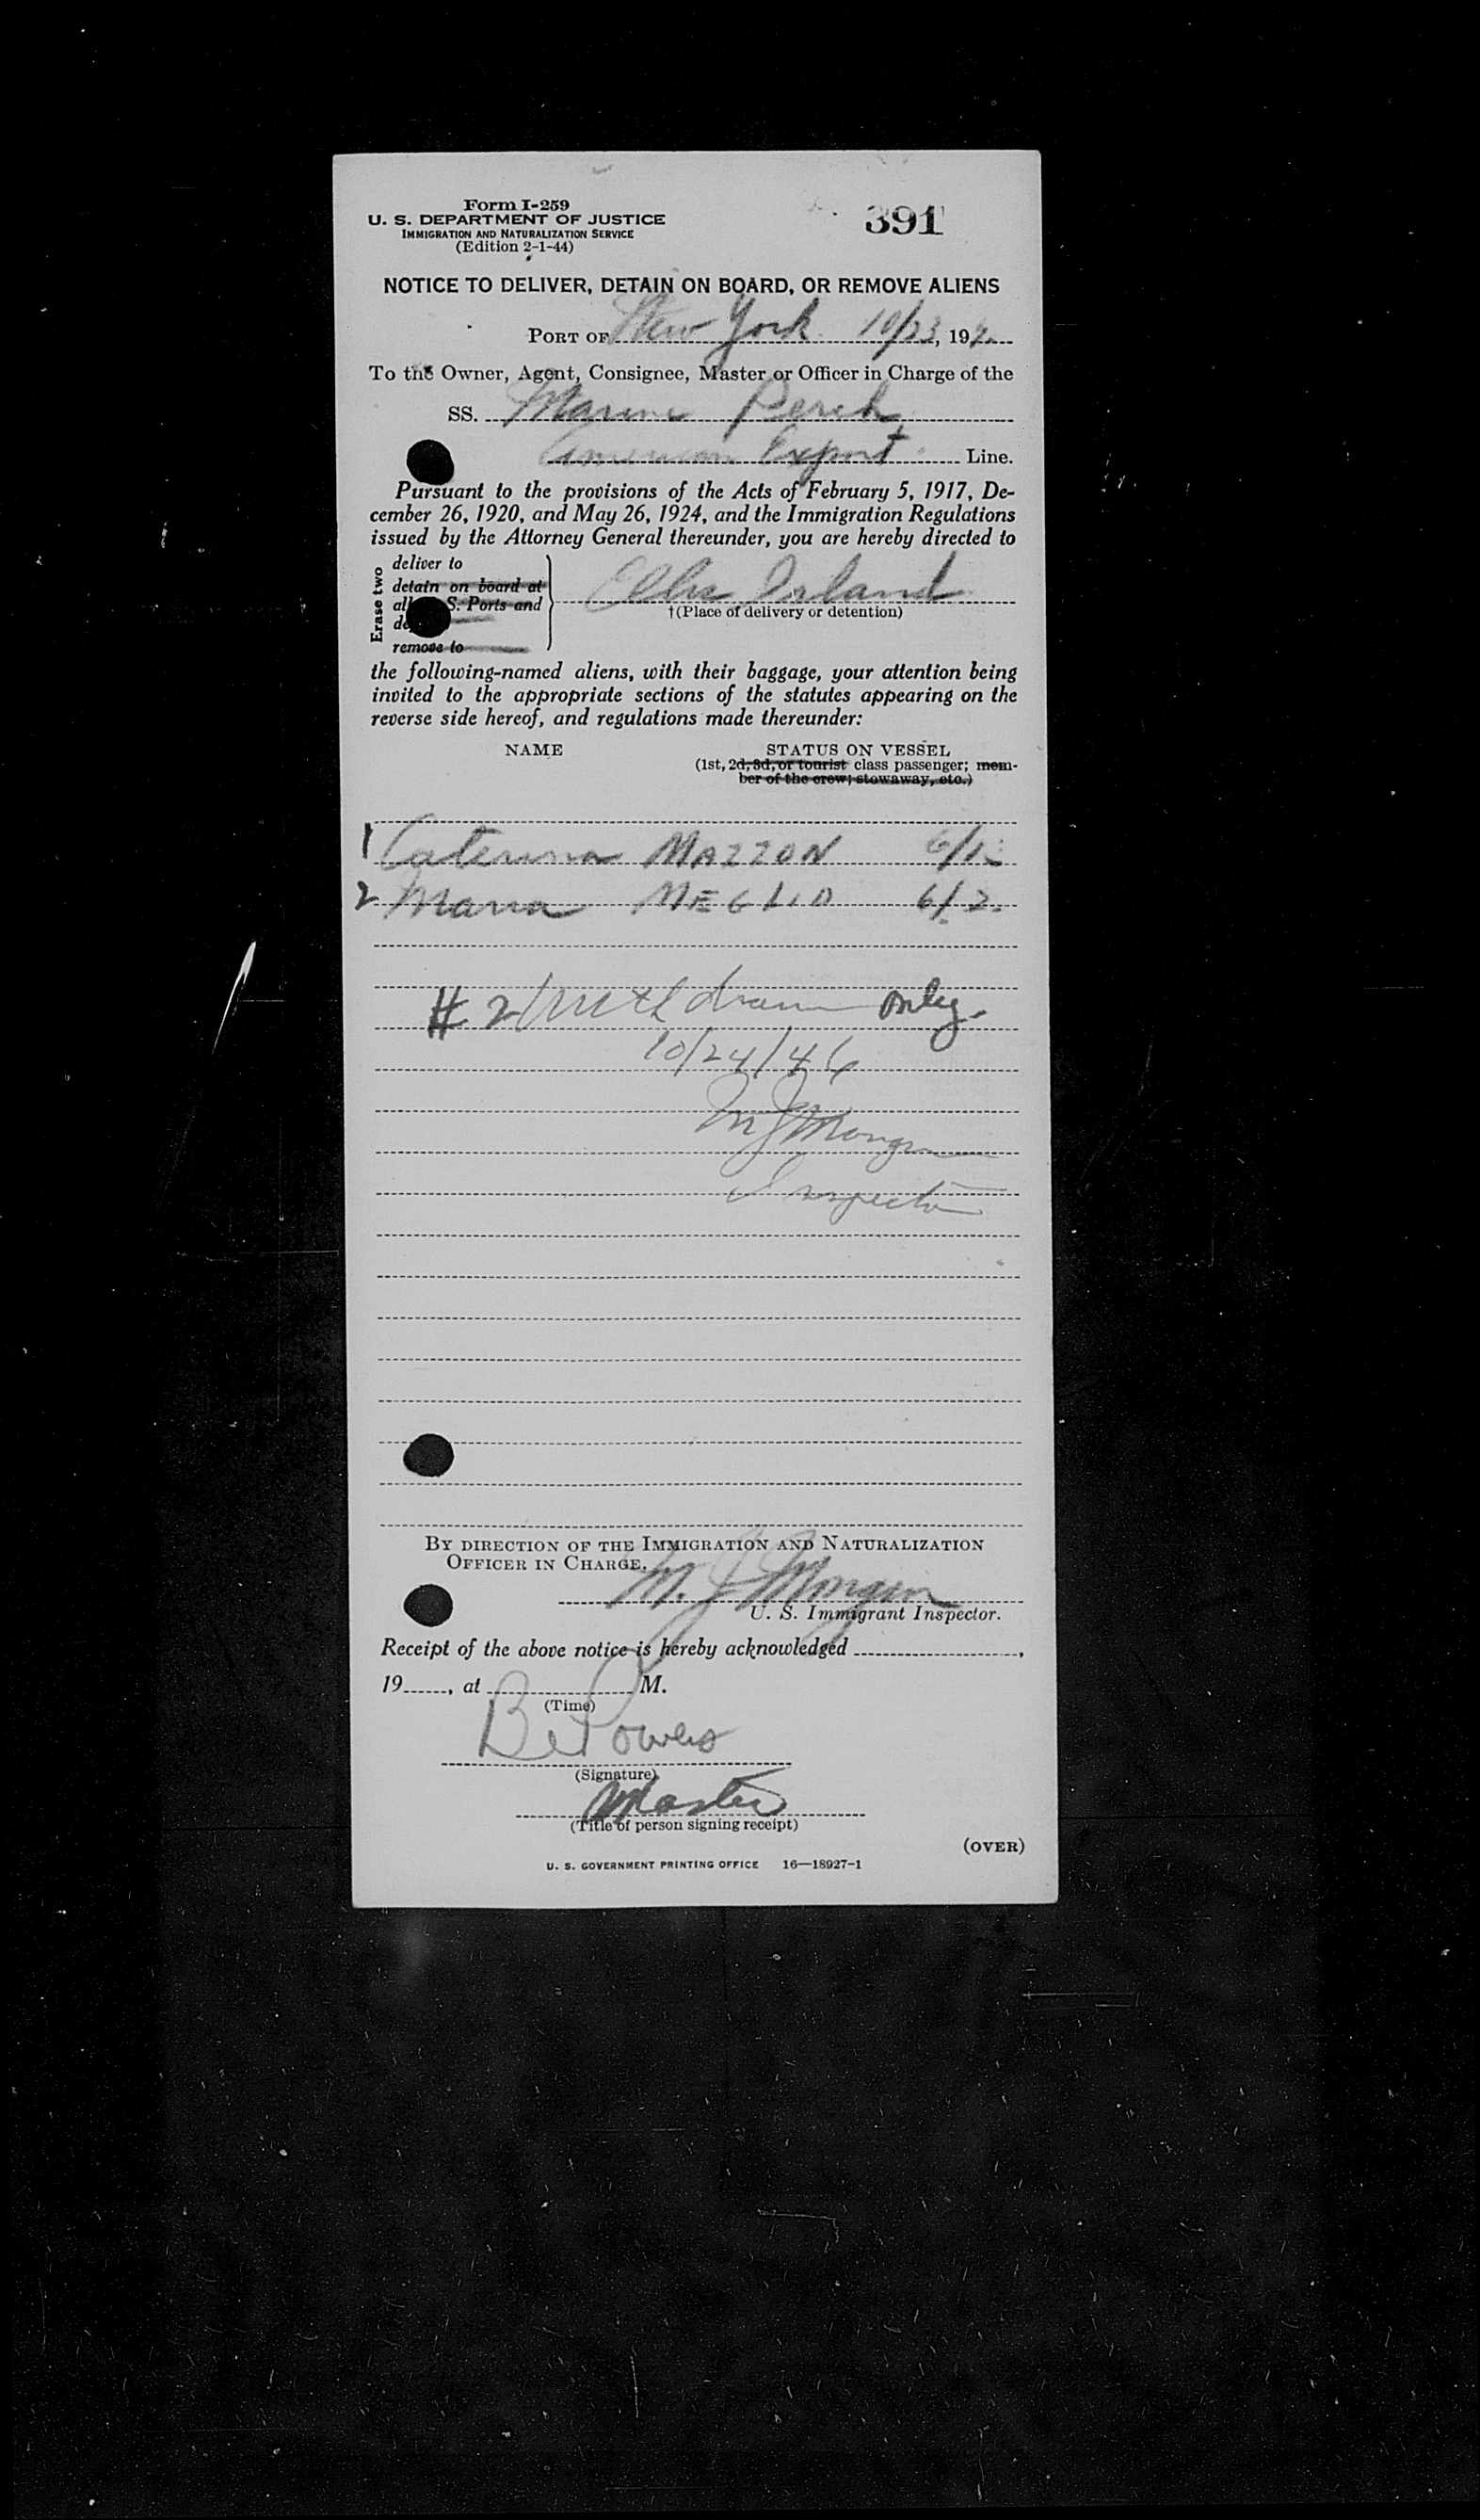 Form I-259
U. S. DEPARTMENT OF JUSTICE
IMMIGRATION AND NATURALIZATION SERVICE
(Edition 2-1-44)
391
NOTICE TO DELIVER, DETAIN ON BOARD, OR REMOVE ALIENS
PORT OF New York 10/23, 19
To the Owner, Agent, Consignee, Master or Officer in Charge of the
SS. Marine Perch
American Export Line.
Pursuant to the provisions of the Acts of February 5, 1917, De-
cember 26, 1920, and May 26, 1924, and the Immigration Regulations
issued by the Attorney General thereunder, you are hereby directed to
Erase two
deliver to
detain on board at
all S. Ports and
remove to
Ellis Island
†(Place of delivery or detention)
the following-named aliens, with their baggage, your attention being
invited to the appropriate sections of the statutes appearing on the
reverse side hereof, and regulations made thereunder:
NAME STATUS ON VESSEL
(1st, 2d, 3d, or tourist class passenger; mem-
ber of the crew; stowaway, etc.)
1 Caterina MAZZON
2 Maria MEGLIO 6/2.
# 2 withdrawn only.
10/24/46
M J Mongin
Inspector
BY DIRECTION OF THE IMMIGRATION AND NATURALIZATION
OFFICER IN CHARGE.
M. J. Mongin
U. S. Immigrant Inspector.
Receipt of the above notice is hereby acknowledged ,
19 , at M.
(Time)
Powers
(Signature)
Master
(Title of person signing receipt)
(OVER)
U. S. GOVERNMENT PRINTING OFFICE 16—18927-1